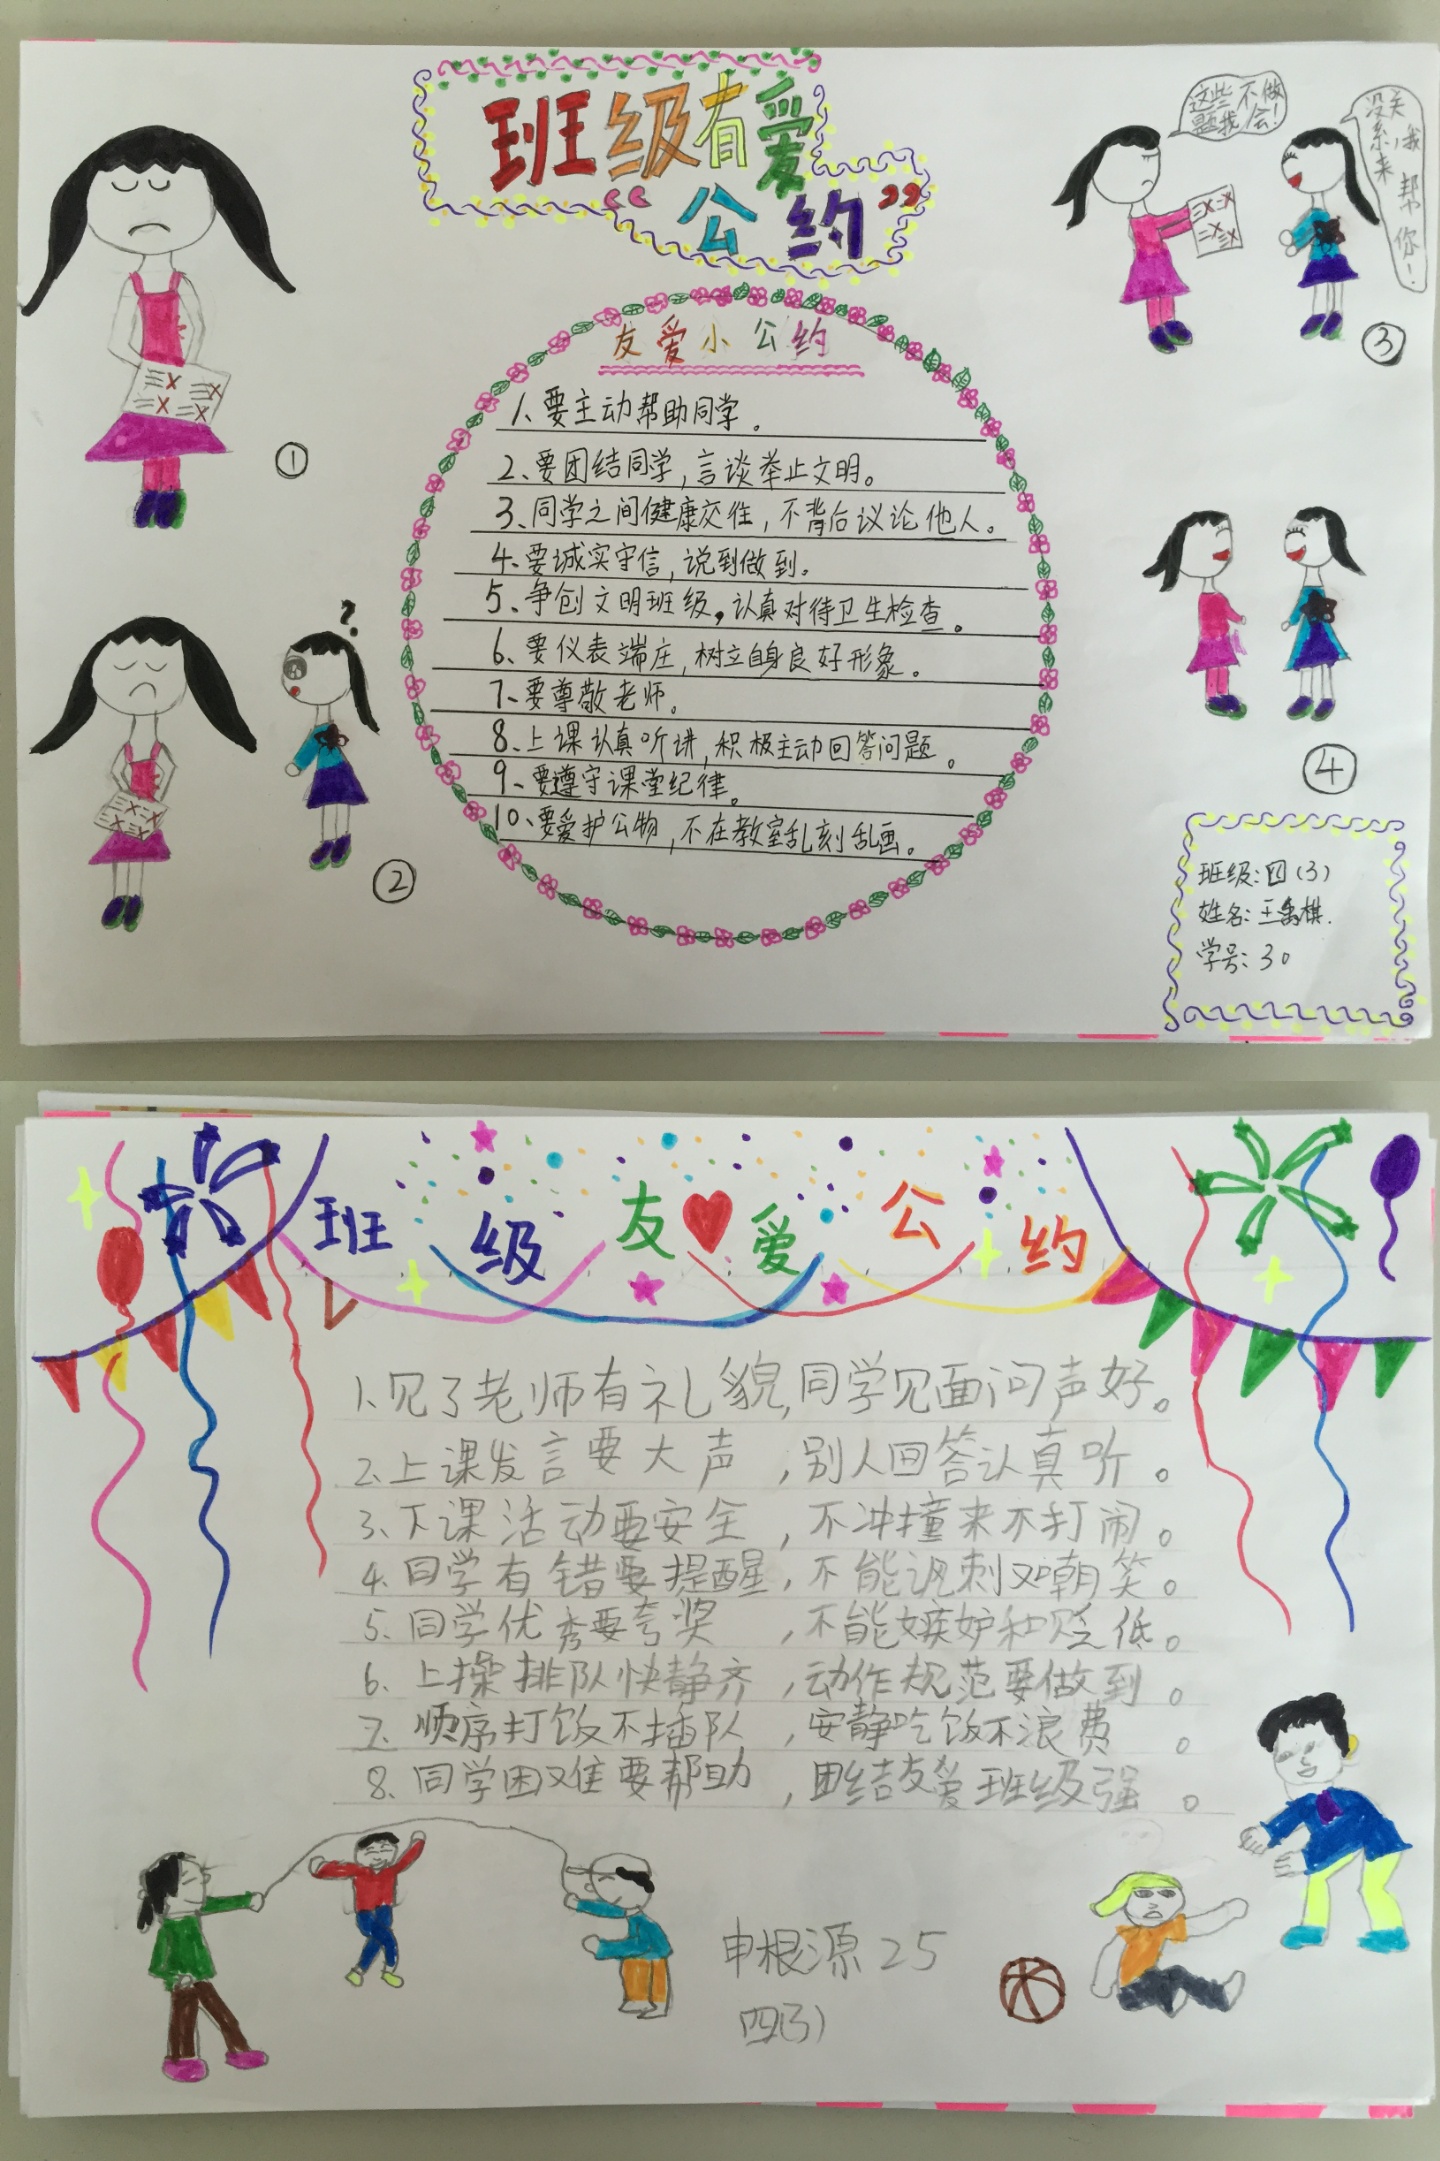 班级有爱
“公约”
这些不做
题我会!
没关
系,我
来帮
你!
友爱小公约
1、要主动帮助同学。
2、要团结同学,言谈举止文明。
3、同学之间健康交往,不背后议论他人。
4、要诚实守信,说到做到。
5、争创文明班级,认真对待卫生检查。
6、要仪表端庄,树立自身良好形象。
7、要尊敬老师。
8、上课认真听讲,积极主动回答问题。
9、要遵守课堂纪律。
10、要爱护公物,不在教室乱刻乱画。
①
?
②
③
④
班级:四(3)
姓名:王禹棋.
学号:30
班级友爱公约
1.见了老师有礼貌,同学见面问声好。
2.上课发言要大声,别人回答认真听。
3、下课活动要安全,不冲撞来不打闹。
4.同学有错要提醒,不能讽刺又嘲笑。
5.同学优秀要夸奖,不能嫉妒和贬低。
6.上操排队快静齐,动作规范要做到。
7.顺序打饭不插队,安静吃饭不浪费。
8.同学困难要帮助,团结友爱班级强。
申根源25
四(3)